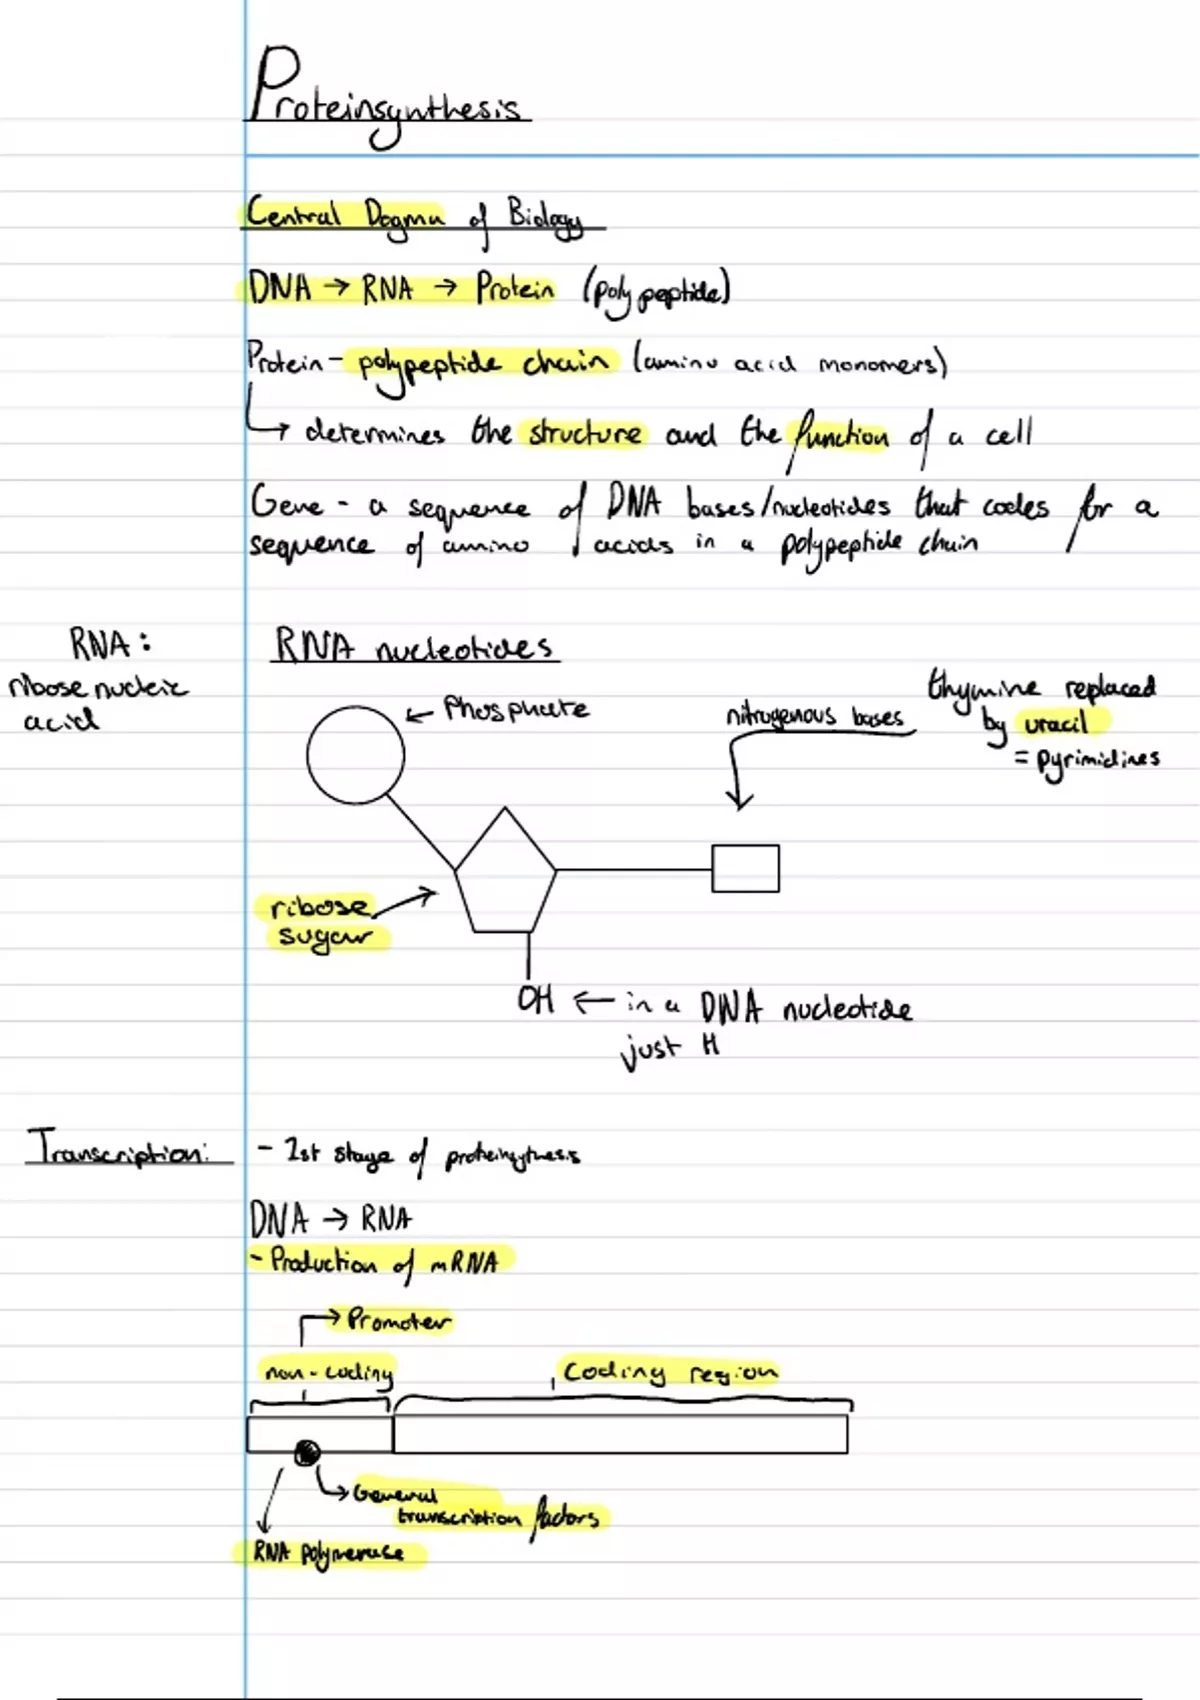 Proteinsynthesis
Central Dogma of Biology
DNA → RNA → Protein (polypeptide)
Protein - polypeptide chain (amino acid monomers)
↳ determines the structure and the function of a cell
Gene - a sequence of DNA bases/nucleotides that codes for a
sequence of amino acids in a polypeptide chain
RNA:
ribose nucleic
acid
RNA nucleotides
← Phosphate
nitrogenous bases
thymine replaced
by uracil
= pyrimidines
ribose
sugar
OH ← in a DNA nucleotide
just H
Transcription:
- 1st stage of proteinsythesis
DNA → RNA
- Production of mRNA
→ Promoter
non-coding
Coding region
↳ General
transcription factors
RNA polymerase